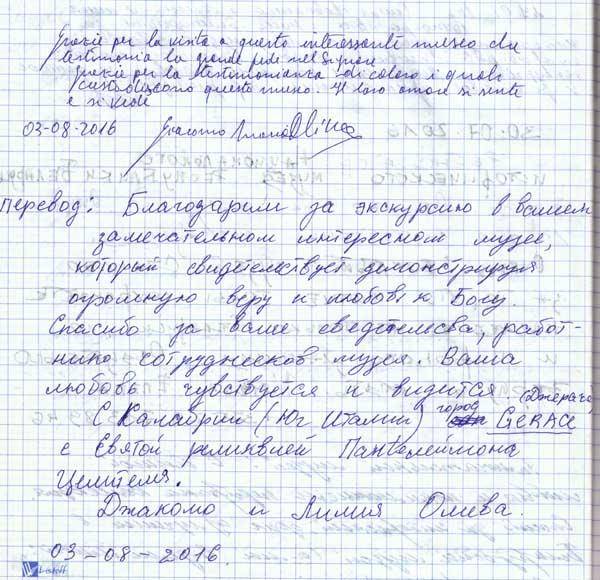 Grazie per la visita a questo interessante museo che
testimonia la grande fede nel Signore
Grazie per la testimonianza di coloro i quali
custodiscono questo museo. Il loro amore si sente
e si vede
03-08-2016 Giacomo Oliva
Перевод: Благодарим за экскурсию в вашем
замечательном интересном музее,
который свидетельствует демонстрируя
огромную веру и любовь к Богу.
Спасибо за ваше сведетельсва, работ-
нико сотрудников музея. Ваша
любовь чувствуется и видится. (Джераче)
С Калабрии (Юг Италии) город GERACE
с Святой реликвией Пантелеймона
Целителя.
Джакомо и Лилия Олива.
03-08-2016.